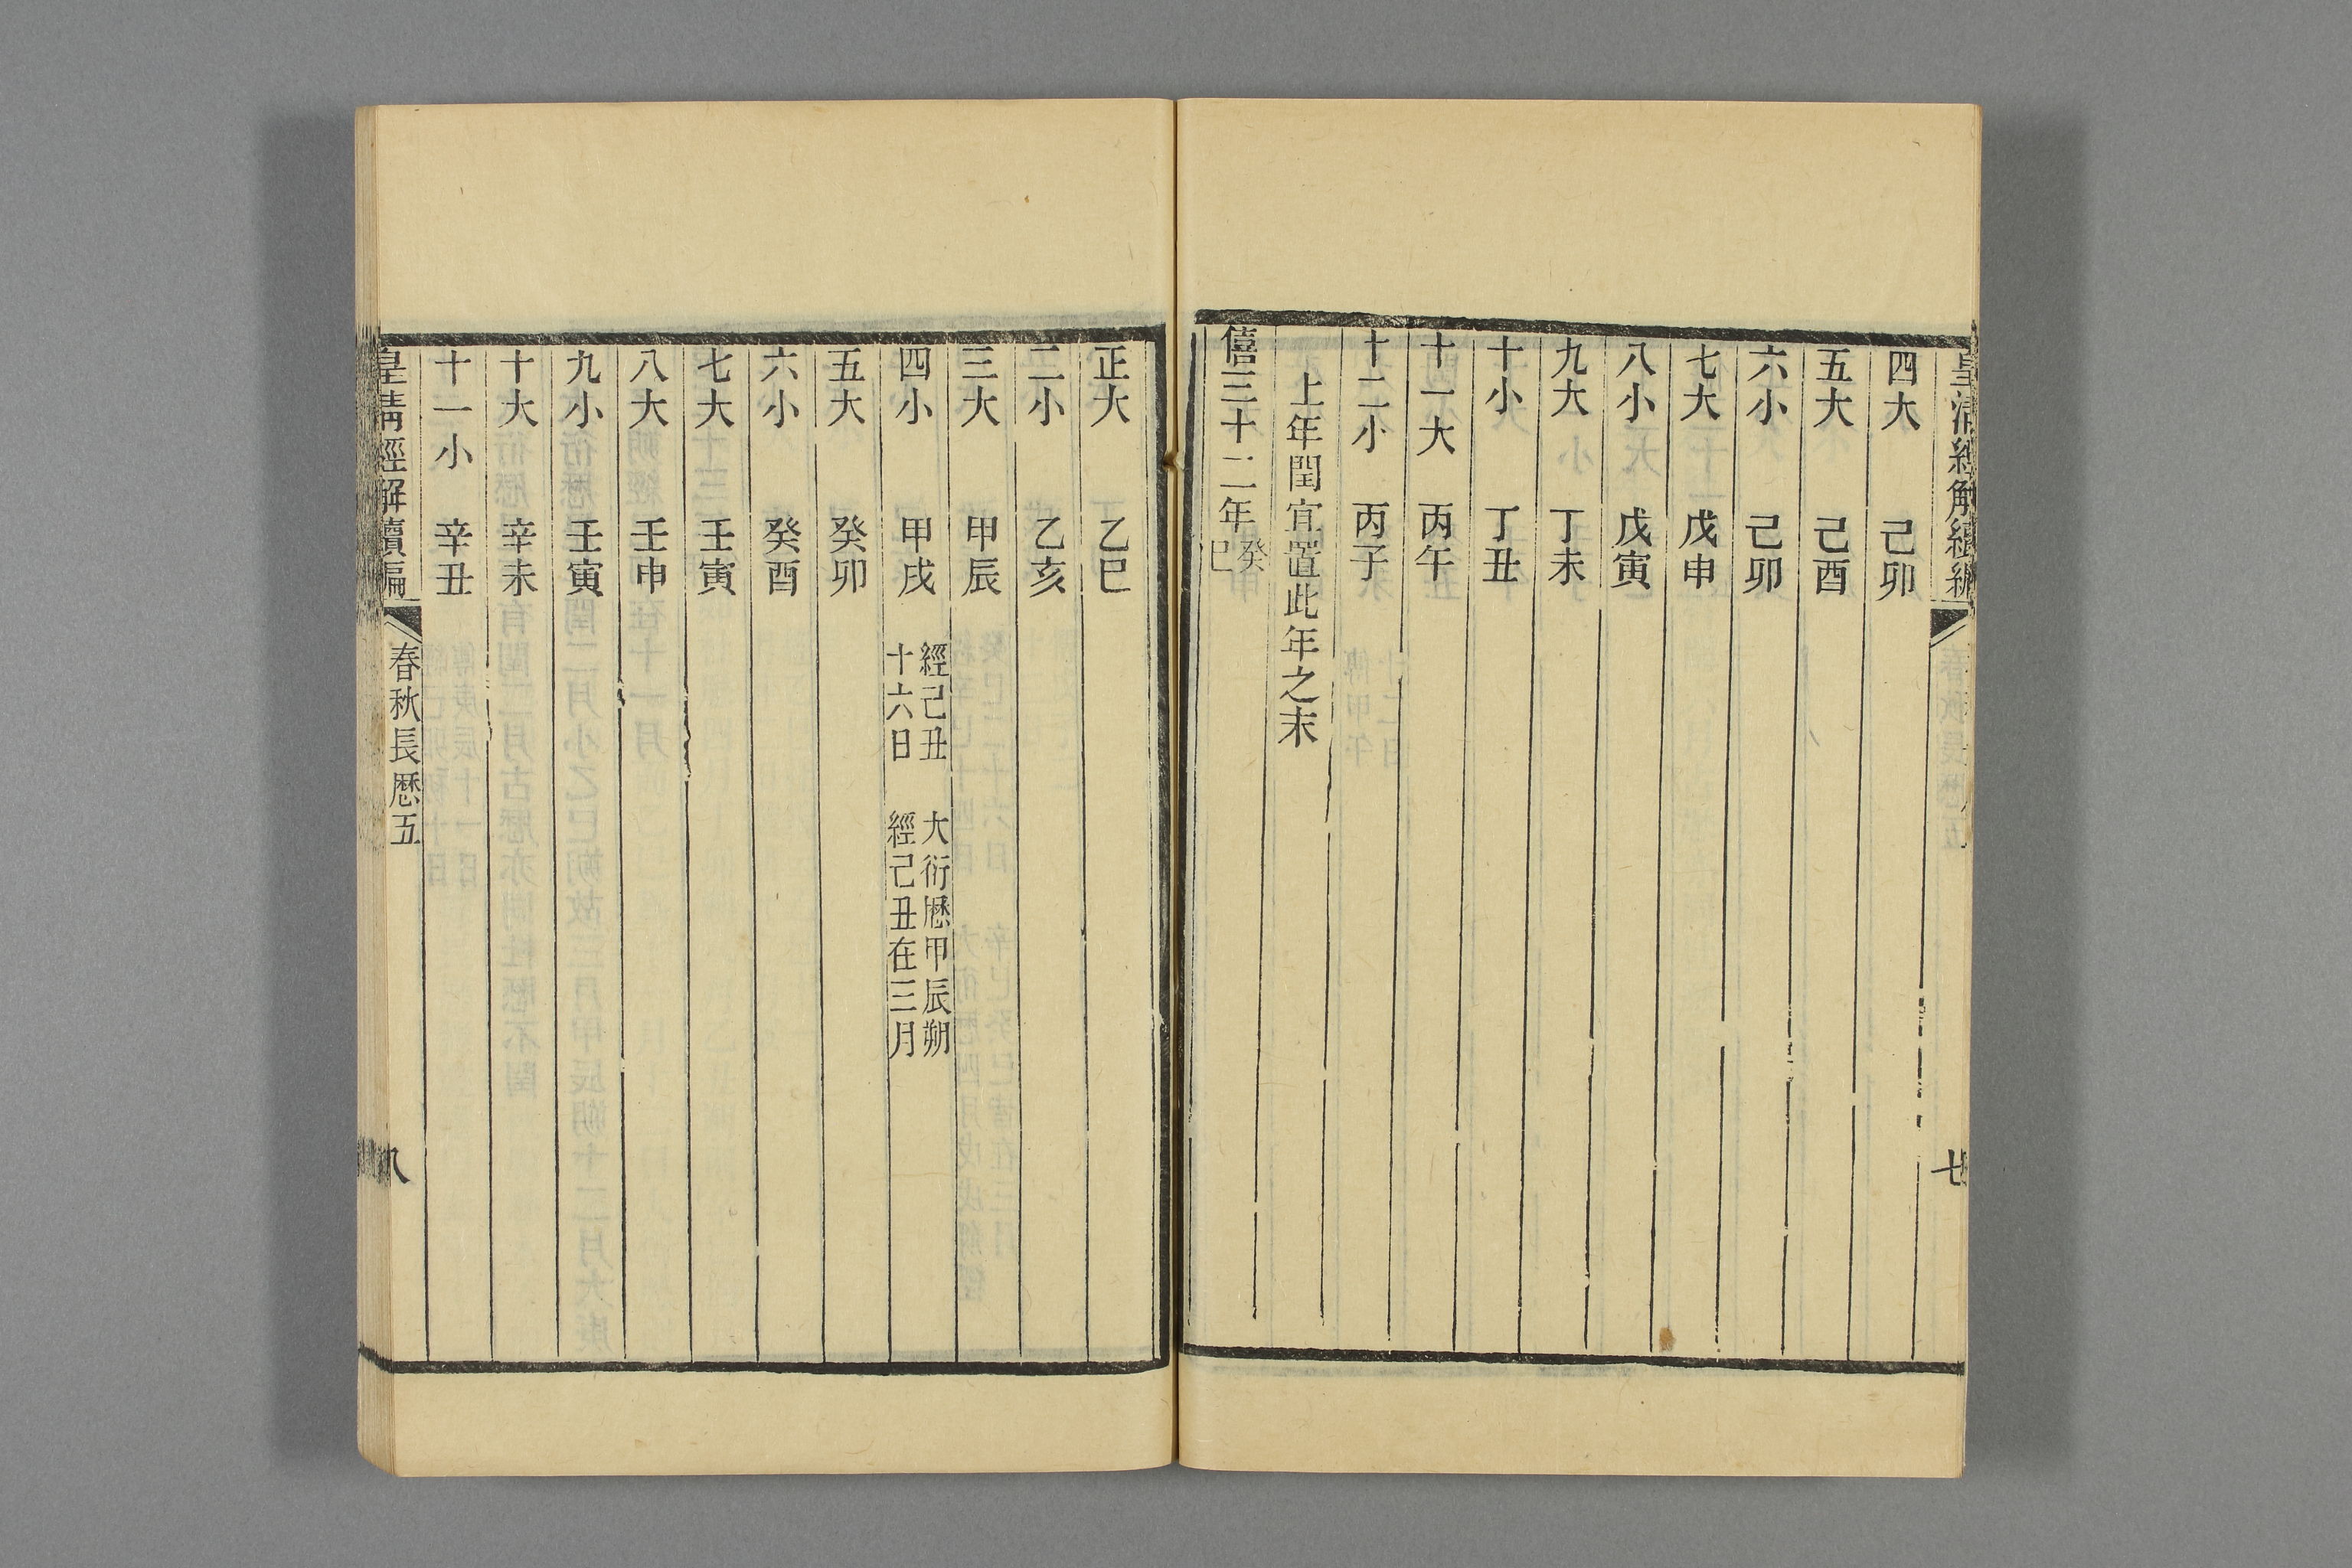 皇清經解續編
七
四大 己卯
五大 己酉
六小 己卯
七大 戊申
八小 戊寅
九大 丁未
十小 丁丑
十一大 丙午
十二小 丙子
上年閏宜置此年之末
僖三十二年癸巳
正大 乙巳
二小 乙亥
三大 甲辰
四小 甲戌 經己丑十六日 大衍厯甲辰朔經己丑在三月
五大 癸卯
六小 癸酉
七大 壬寅
八大 壬申
九小 壬寅
十大 辛未
十一小 辛丑
皇清經解續編 春秋長厯五 八